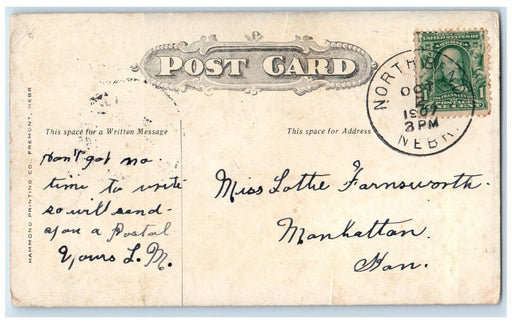 POST CARD
NORTH BEND
OCT
1907
3 PM
NEBR.
UNITED STATES OF
AMERICA
FRANKLIN
POSTAGE
ONE CENT
This space for a Written Message
This space for Address
HAMMOND PRINTING CO., FREMONT, NEBR
Don't got no
time to write
so will send
you a Postal
Yours L. M.
Miss Lotte Farnsworth.
Manhattan.
Kan.